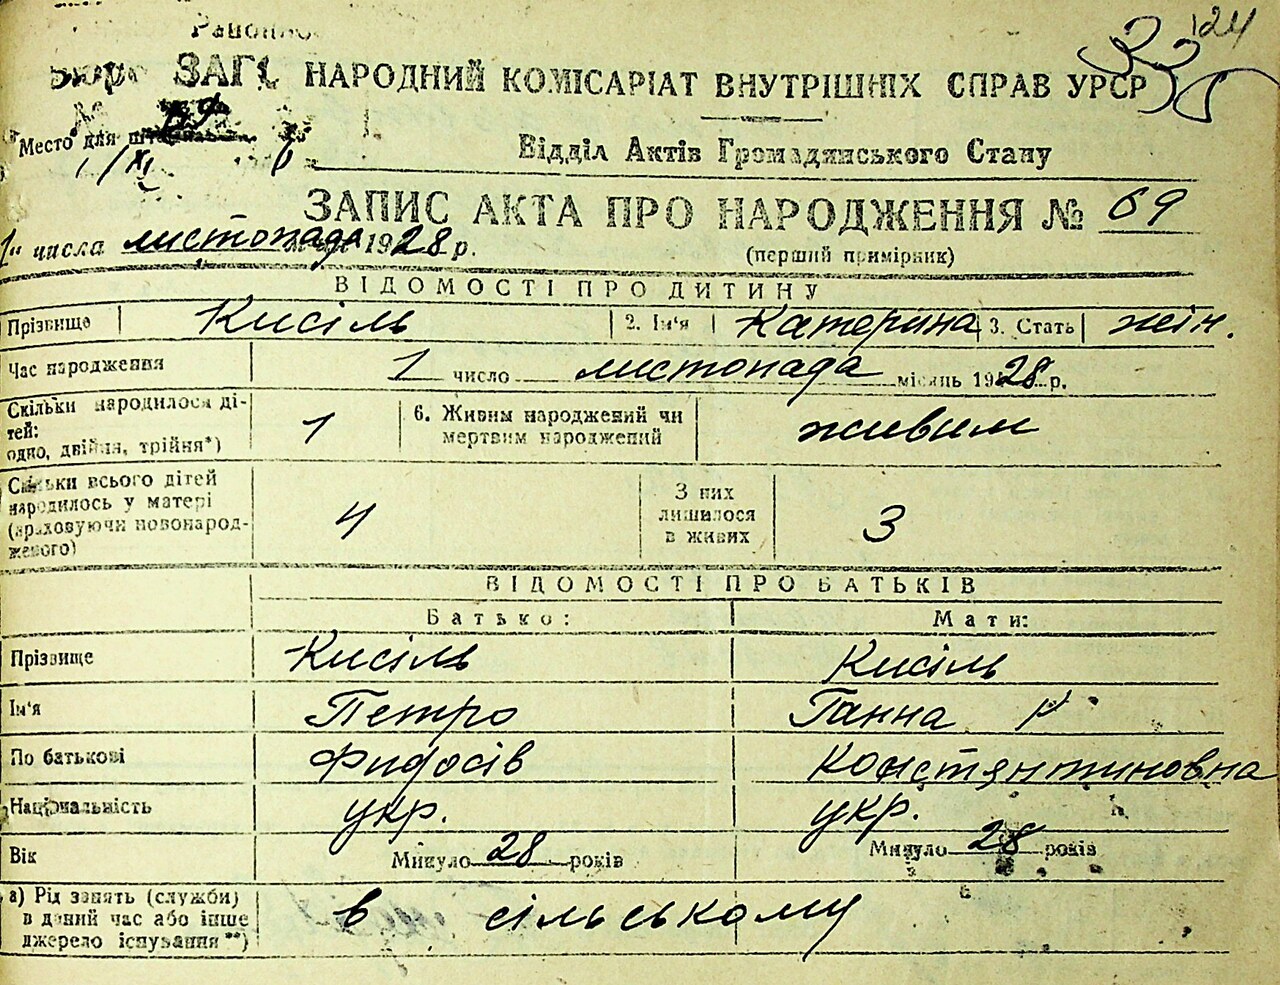 124
33
ЗАГС НАРОДНИЙ КОМІСАРІАТ ВНУТРІШНІХ СПРАВ УРСР
Место для
Відділ Актів Громадянського Стану
1/XI
ЗАПИС АКТА ПРО НАРОДЖЕННЯ № 69
1" числа листопада 1928 р. (перший примірник)
ВІДОМОСТІ ПРО ДИТИНУ
Прізвище Кисіль 2. Ім'я Катерина 3. Стать жін.
Час народження 1 число листопада місяць 1928 р.
Скільки народилося ді-
тей:
одно, двійня, трійня*) 1 6. Живим народжений чи
мертвим народжений живим
Скільки всього дітей
народилось у матері
(враховуючи новонарод-
женого) 4 З них
лишилося
в живих 3
ВІДОМОСТІ ПРО БАТЬКІВ
Батько: Мати:
Прізвище Кисіль Кисіль
Ім'я Петро Ганна
По батькові Фидосів Констянтиновна
Національність укр. укр.
Вік Минуло 28 років Минуло 28 років
а) Рід занять (служби)
в даний час або інше
джерело існування**) в сільському